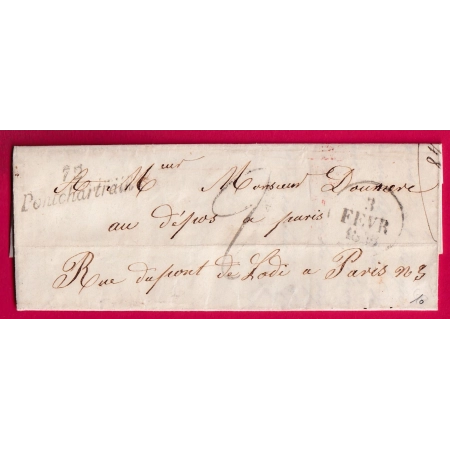 77
Pontchartrain
A Mr Monsieur Doumere
au dépos a paris
3
FEVR
Rue du pont de Lodi a Paris n 3
10